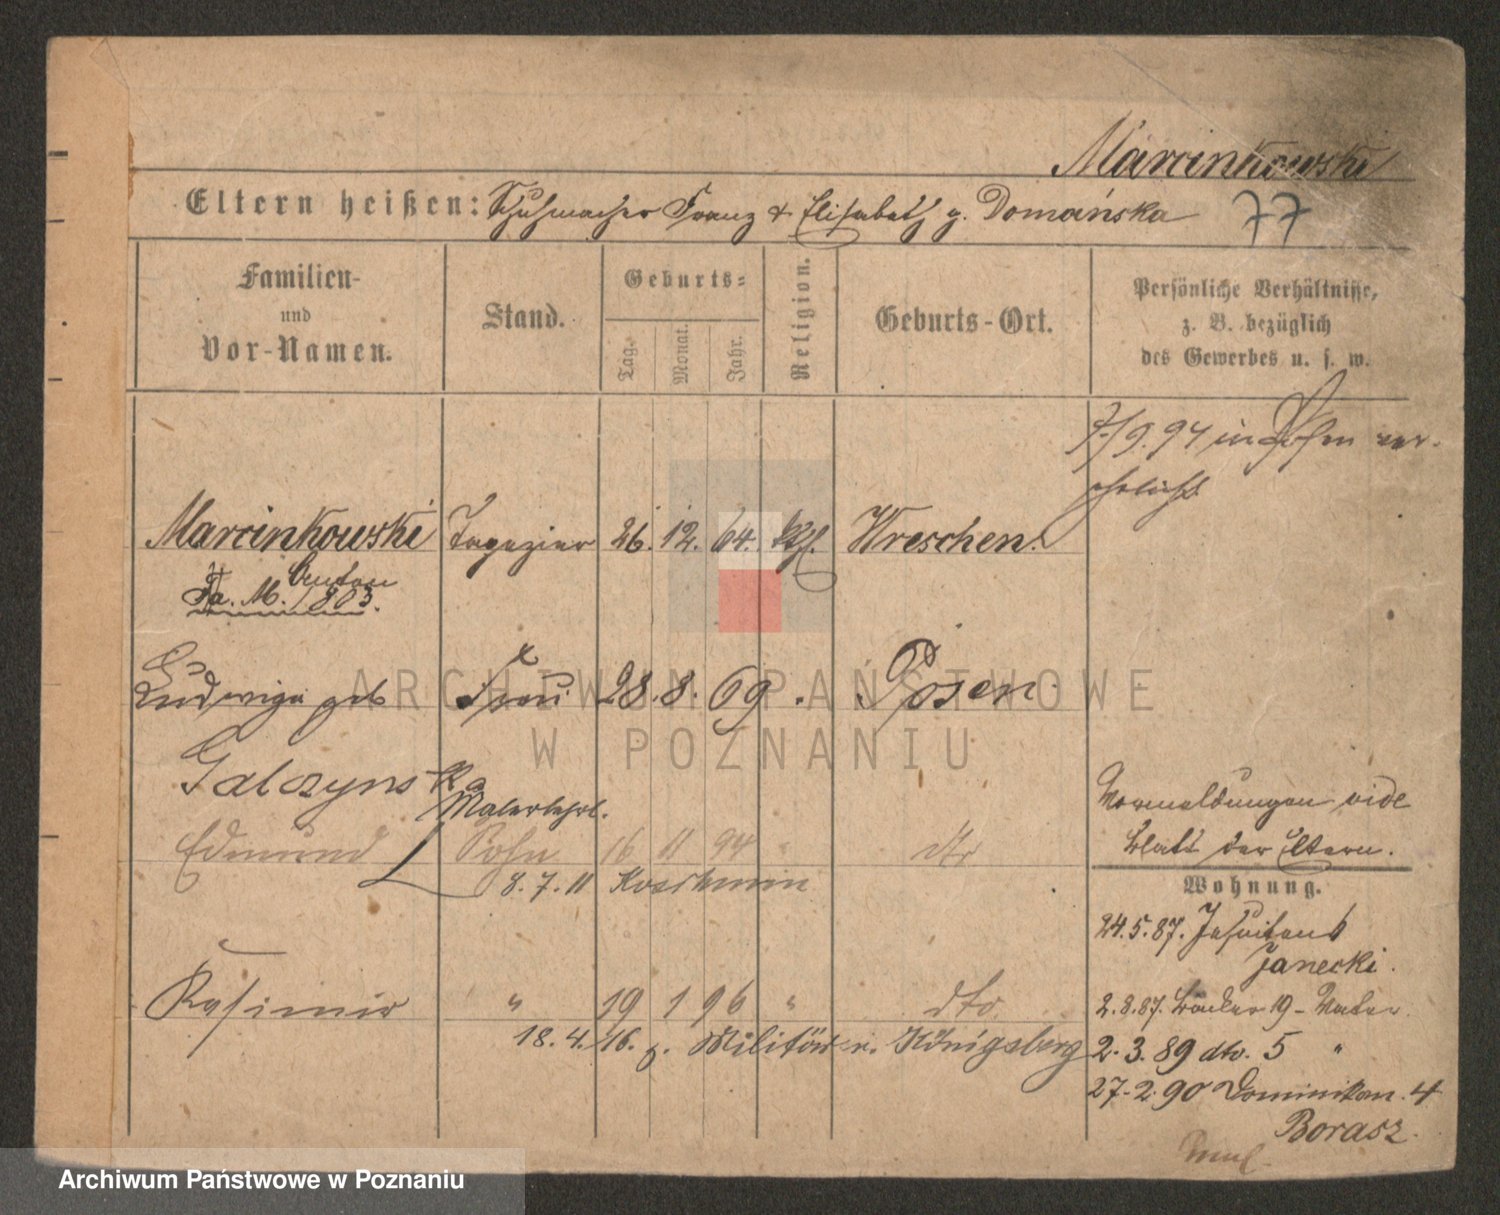 Marcinkowski
Eltern heißen: Schuhmacher Franz & Elisabeth g. Domańska 77
Familien- und Vor-Namen.
Stand.
Geburts-
Tag.
Monat.
Jahr.
Religion.
Geburts-Ort.
Persönliche Verhältnisse, z. B. bezüglich des Gewerbes u. s. w.
9.94 in Posen ver-
ehelicht
Marcinkowski Tapezier 26. 12. 64. kth. Wreschen.
Anton
Fa. M. 1803.
Ludwiga geb Frau 28. 8. 69. Posen
Galczynska
Malerlehrl.
Edmund Sohn 16 11 94 " dto
8. 7. 11 Koschmin
Vormeldungen vide
Blatt der Eltern.
Wohnung.
24. 5. 87. Jesuiten
Janecki.
Kasimir " 19 1 96 " dto
18. 4. 16. z. Militär n. Königsberg
2. 8. 87. Bäcker 19 -
2. 3. 89 dto. 5 "
27. 2. 90 Dominikan. 4
Borasz.
ARCHIWUM PAŃSTWOWE
W POZNANIU
Archiwum Państwowe w Poznaniu